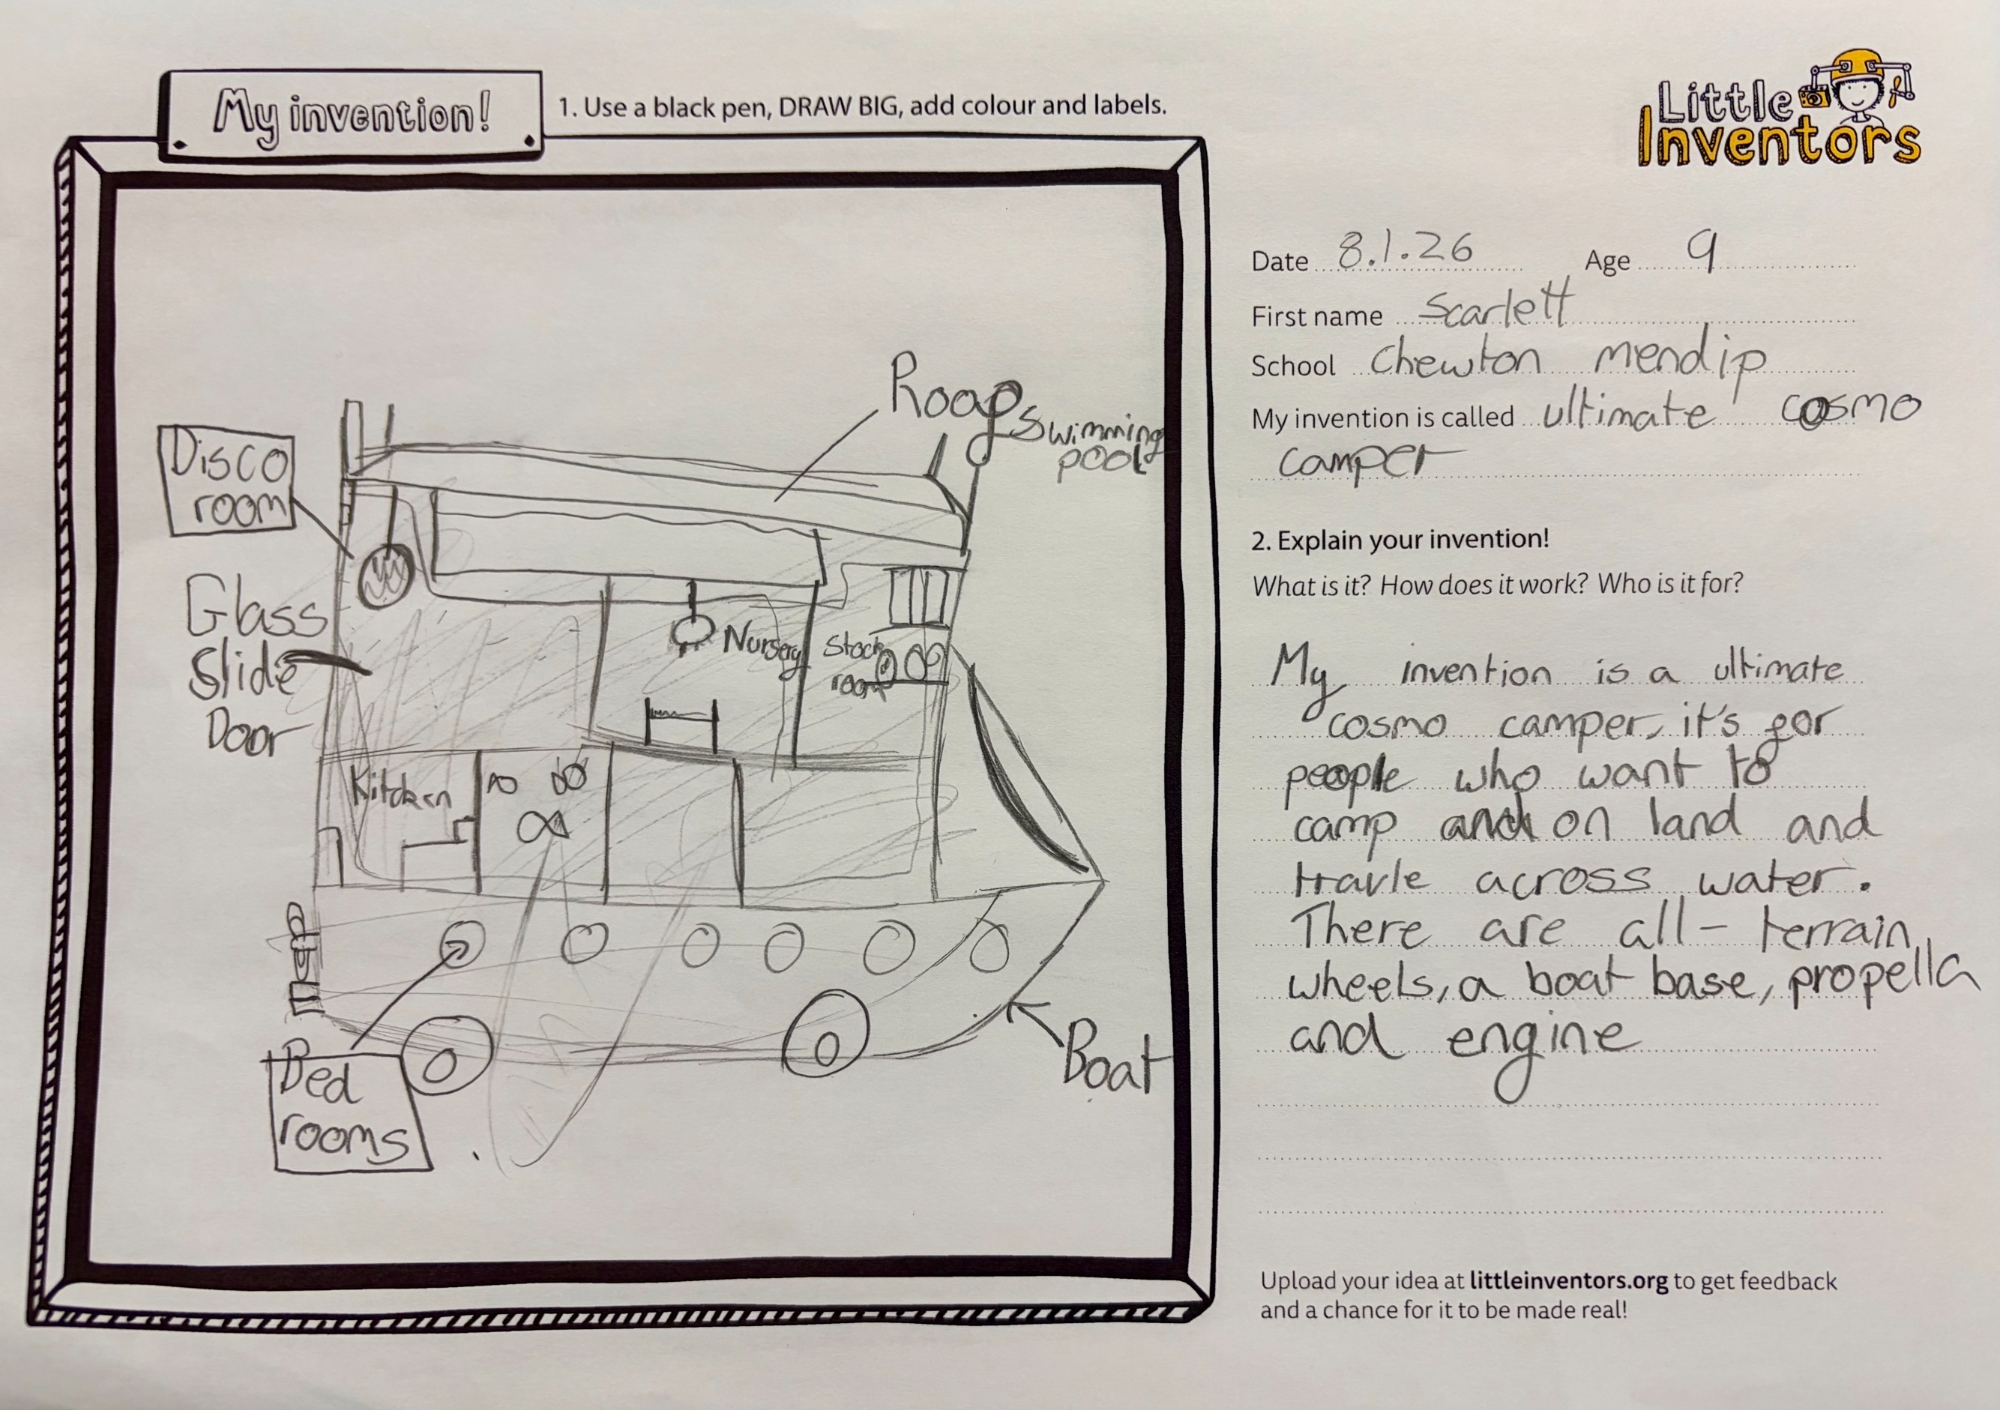 My invention!
1. Use a black pen, DRAW BIG, add colour and labels.
Little
Inventors
Date 8.1.26 Age 9
First name Scarlett
School Chewton mendip
My invention is called ultimate cosmo
camper
2. Explain your invention!
What is it? How does it work? Who is it for?
My invention is a ultimate
cosmo camper, it's for
people who want to
camp on land and
travle across water.
There are all-terrain
wheels, a boat base, propella
and engine
Upload your idea at littleinventors.org to get feedback
and a chance for it to be made real!
Roof
Swimming
pool
Disco
room
Glass
Slide
Door
Nursery
Stock
room
Kitchen
Bed
rooms
Boat